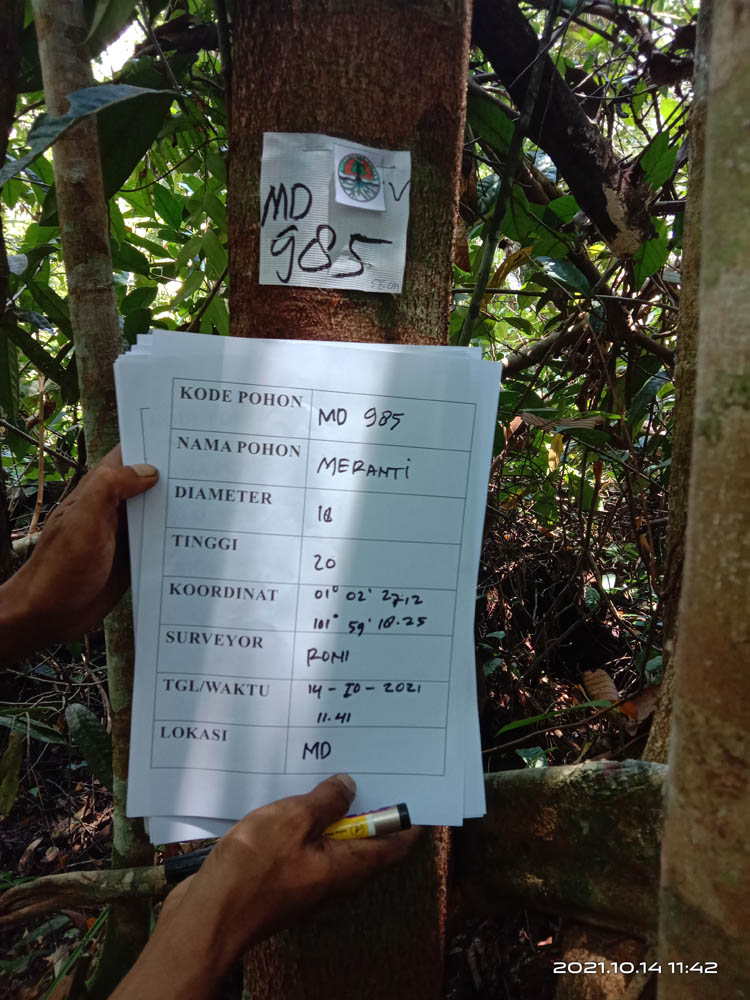 MD
985
55 cm
KODE POHON MD 985
NAMA POHON MERANTI
DIAMETER 18
TINGGI 20
KOORDINAT 01° 02' 27,12
101° 59' 18.25
SURVEYOR RONI
TGL/WAKTU 14-10-2021
11.41
LOKASI MD
2021.10.14 11:42